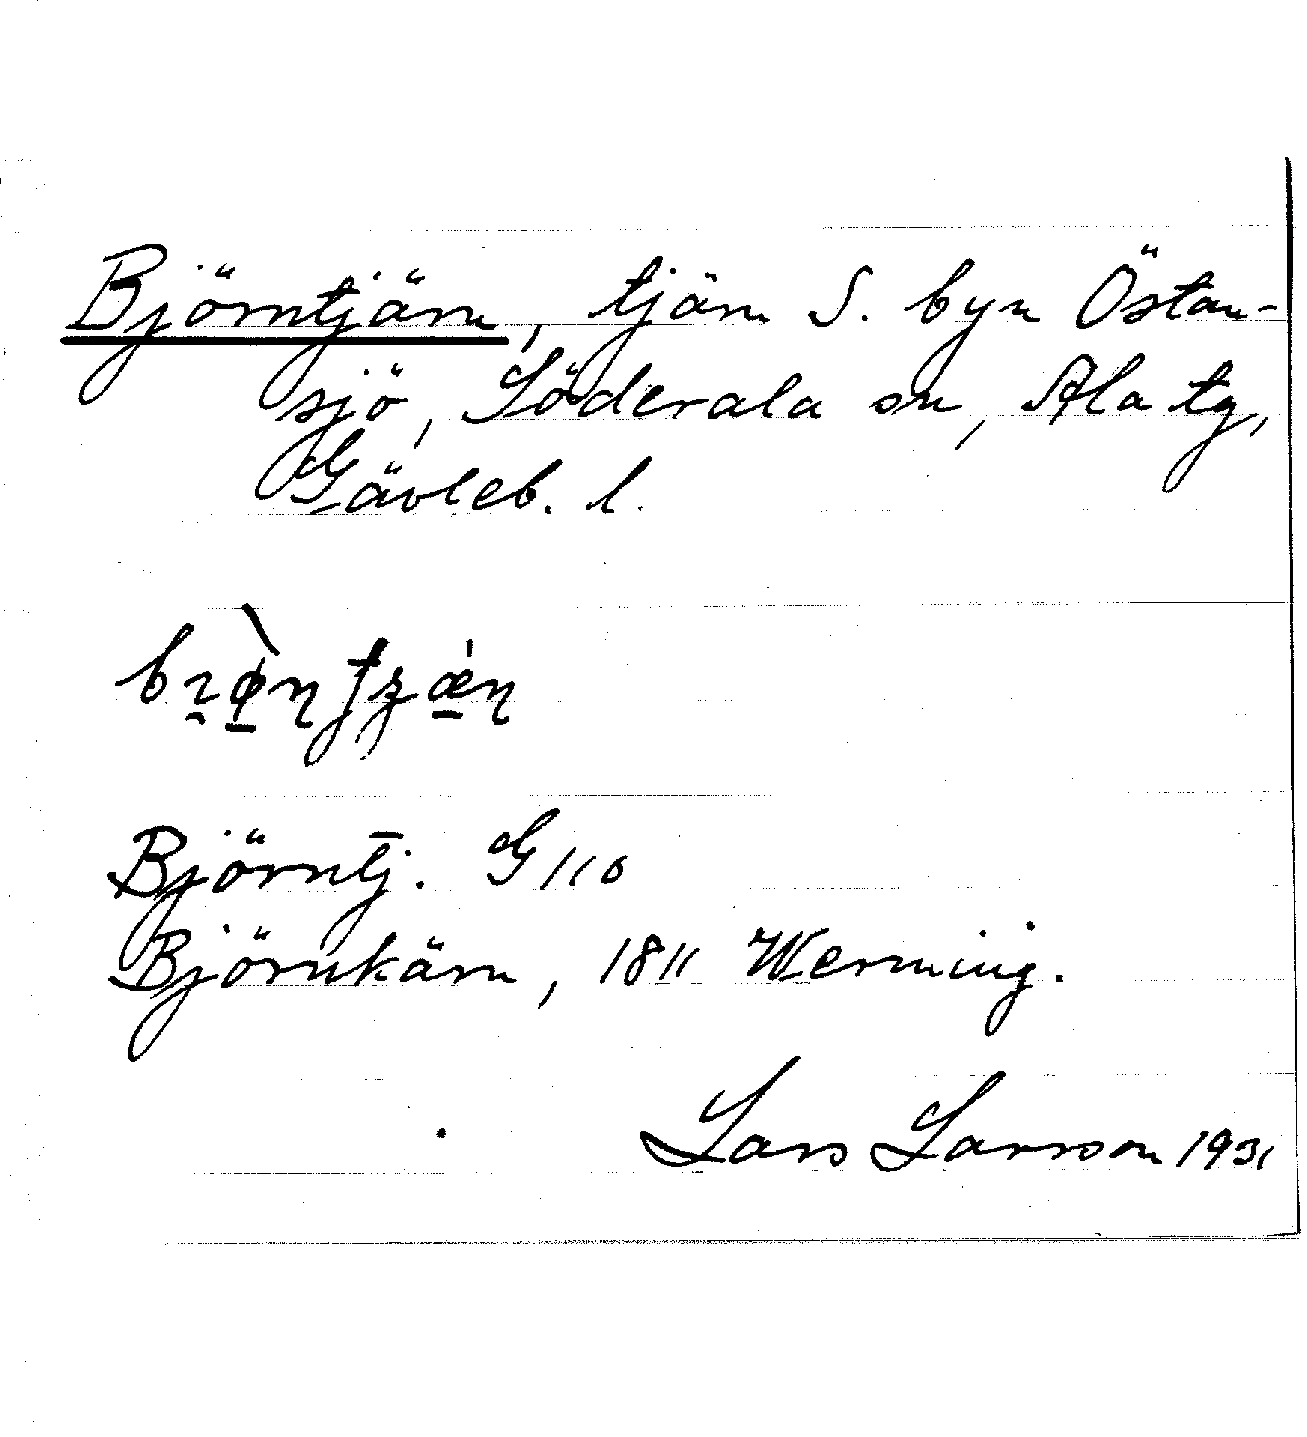 Björntjärn, tjärn S. byn Östan-
sjö, Söderala sn, Ala tg,
Gävleb. l.
Björntj. G 110
Björnkärn, 1811 Werming.
Lars Larsson 1931